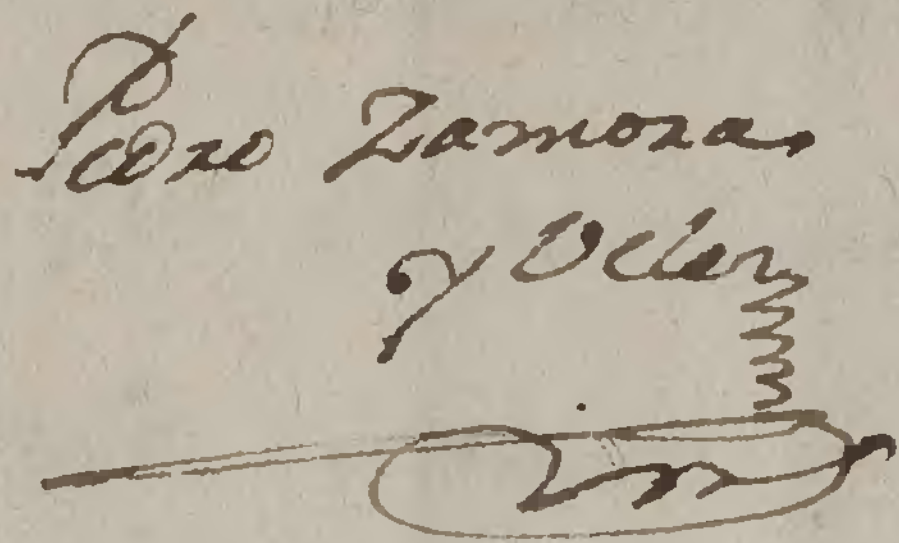 Pedro Zamora
y Veler